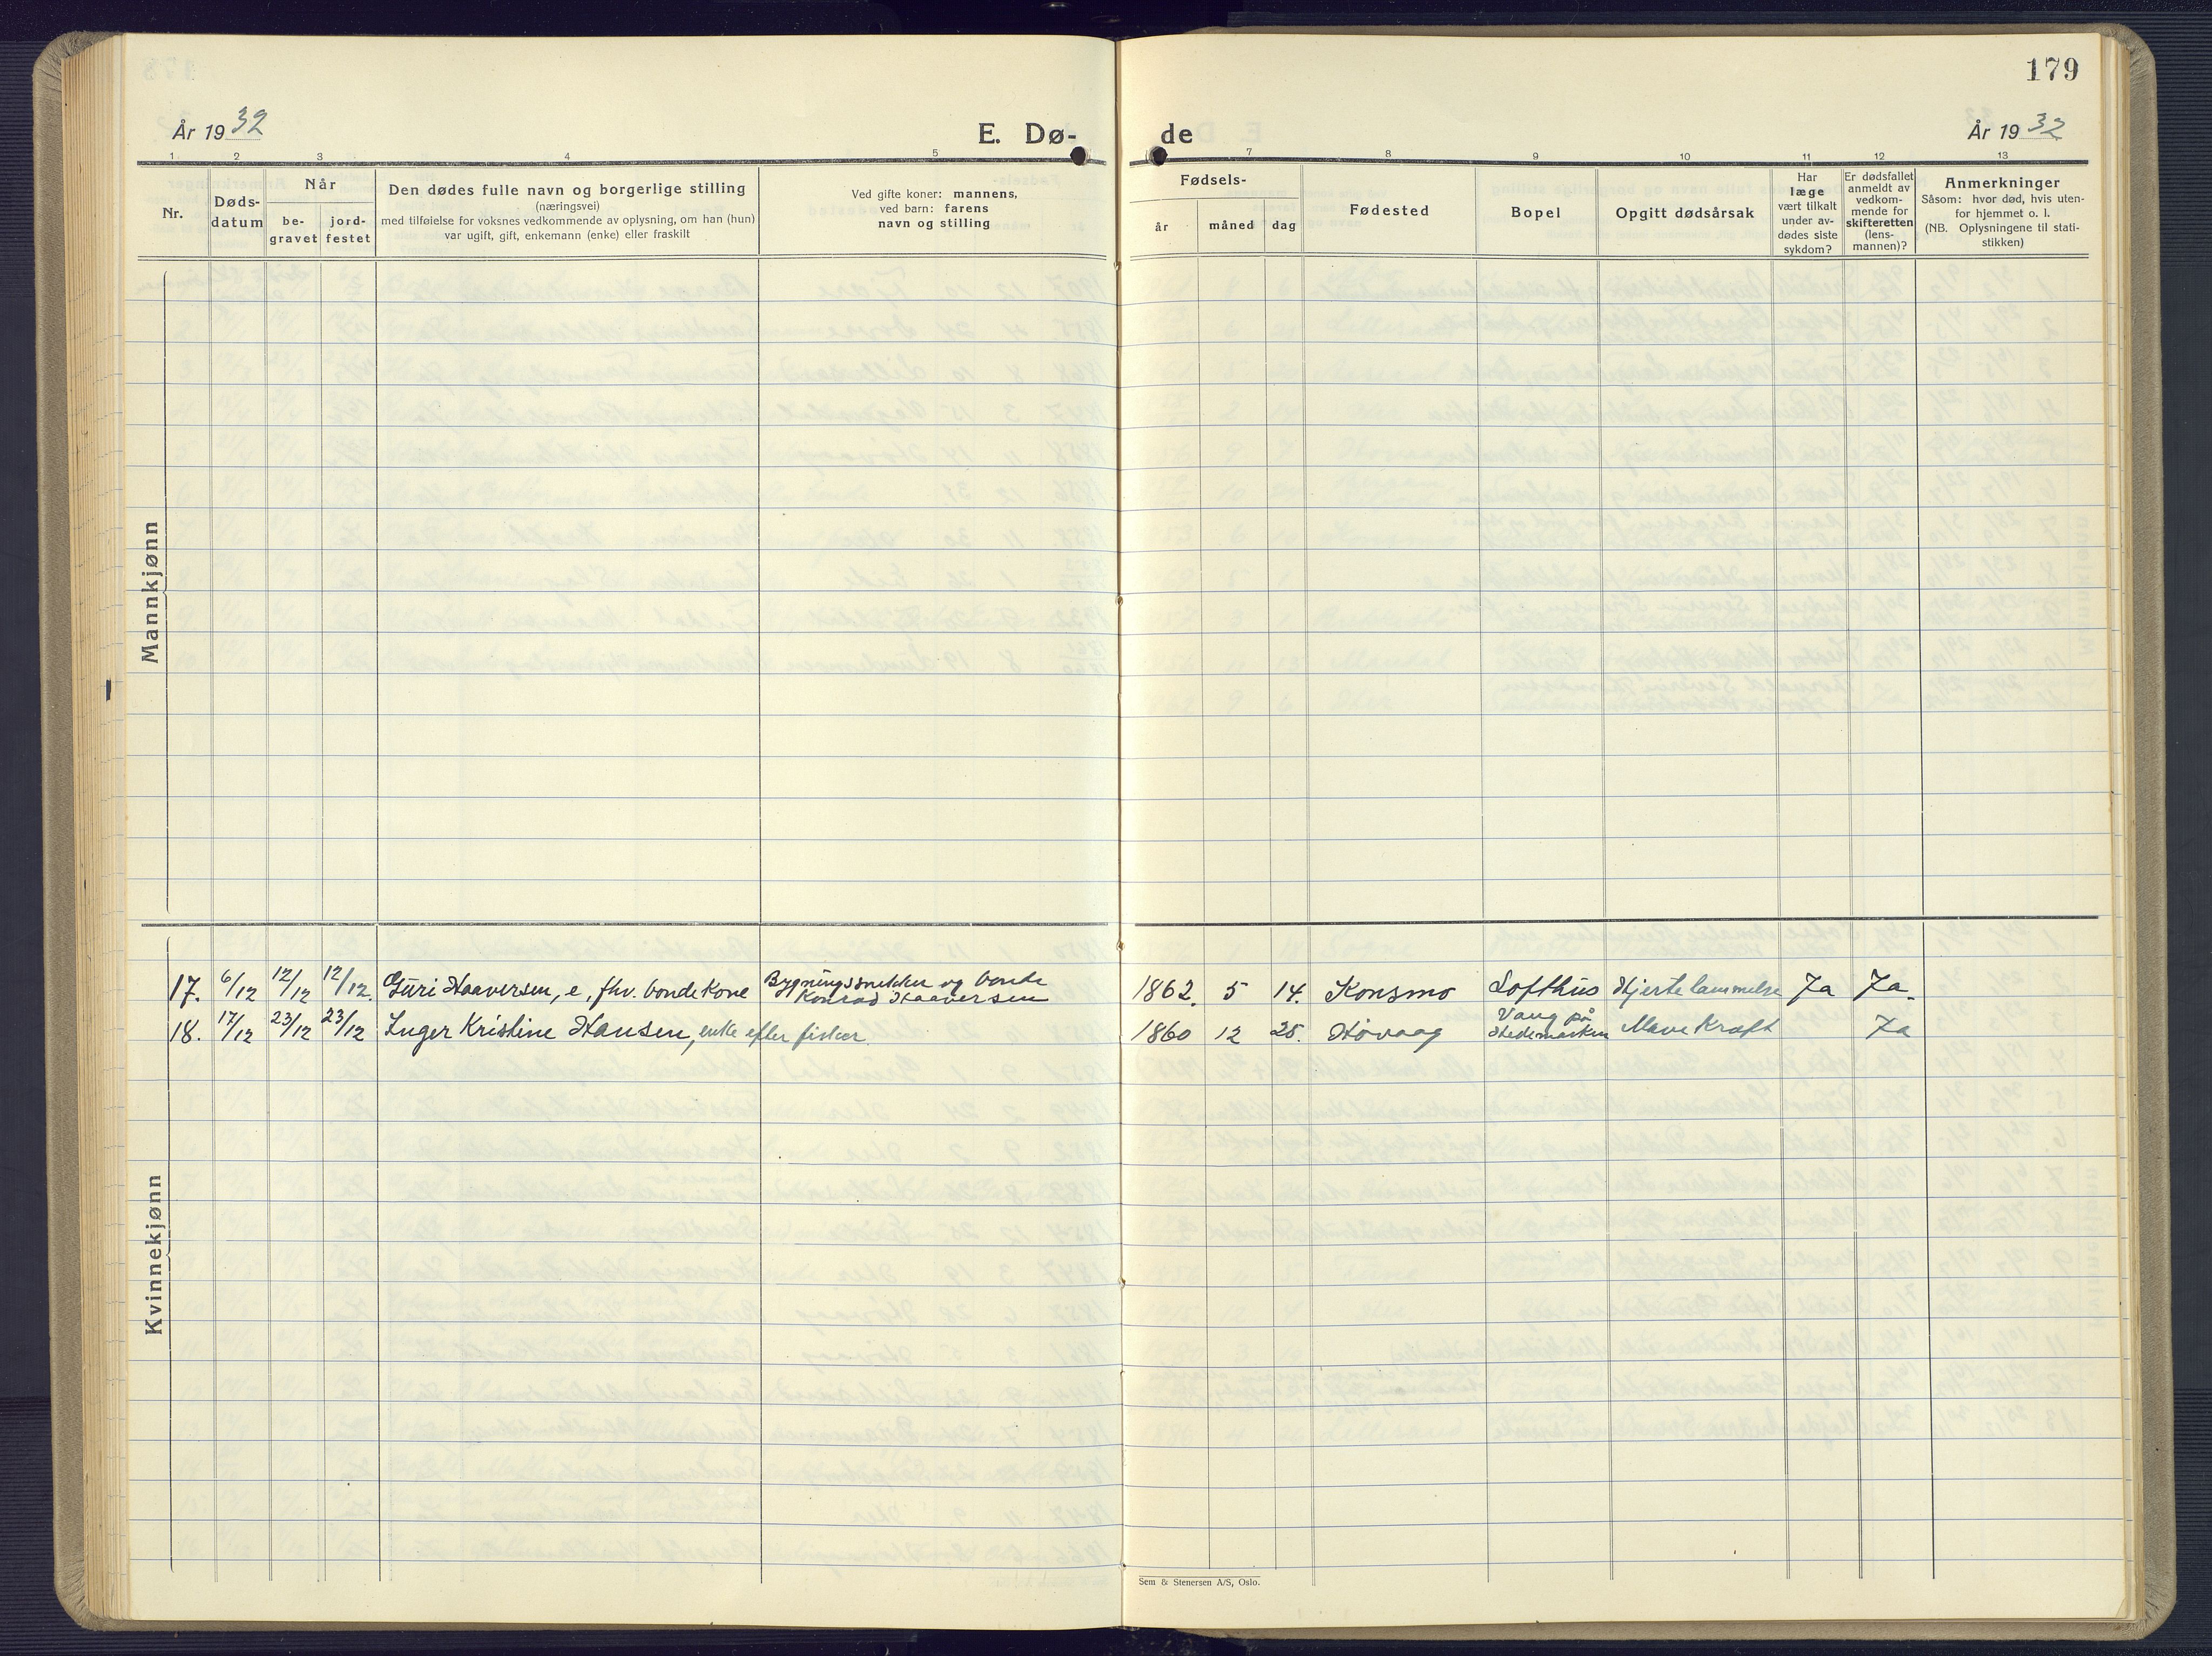 179
År 1932
E. Dø-
de
År 1932
1 2 3 4 5 7 8 9 10 11 12 13
Nr.
Døds-
datum
Når
be-
gravet
jord-
festet
Den dødes fulle navn og borgerlige stilling
(næringsvei)
med tilføielse for voksnes vedkommende av oplysning, om han (hun)
var ugift, gift, enkemann (enke) eller fraskilt
Ved gifte koner: mannens,
ved barn: farens
navn og stilling
Fødsels-
år
måned
dag
Fødested
Bopel
Opgitt dødsårsak
Har
læge
vært tilkalt
under av-
dødes siste
sykdom?
Er dødsfallet
anmeldt av
vedkom-
mende for
skifteretten
(lens-
mannen)?
Anmerkninger
Såsom: hvor død, hvis uten-
for hjemmet o. l.
(NB. Oplysningene til stati-
stikken)
Mannkjønn
Kvinnekjønn
17. 6/12 12/12 12/12. Guri Haaversen, e, fhv. bondekone
Bygningssnekker og bonde
Konrad Haaversen
1862. 5 14. Konsmo Lofthus Hjertelammelse Ja Ja.
18. 17/12 23/12 23/12 Inger Kristine Hansen, enke efter fisker
1860 12 25. Høvaag
Vang på
Hedemarken
Mavekræft Ja
Sem & Stenersen A/S, Oslo.